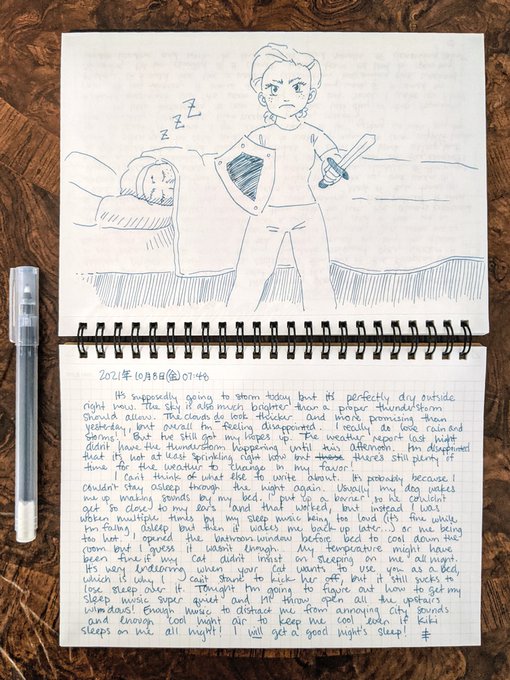 Z
Z
Z
2021年10月8日(金) 07:48
It's supposedly going to storm today but it's perfectly dry outside
right now. The sky is also much brighter than a proper thunderstorm
should allow. The clouds do look thicker and more promising than
yesterday, but overall I'm feeling disappointed. I really do love rain and
storms! But I've still got my hopes up. The weather report last night
didn't have the thunderstorm happening until this afternoon. I'm disappointed
that it's not at least sprinkling right now but these there's still plenty of
time for the weather to change in my favor!
I can't think of what else to write about. It's probably because I
couldn't stay asleep through the night again. Usually my dog wakes
me up making sounds by my bed. I put up a barrier so he couldn't
get so close to my ears and that worked, but instead I was
woken multiple times by my sleep music being too loud (it's fine while
I'm falling asleep but then it wakes me back up later...) or me being
too hot. I opened the bathroom window before bed to cool down the
room but I guess it wasn't enough. My temperature might have
been fine if my cat didn't insist on sleeping on me all night.
It's very endearing when your cat wants to use you as a bed,
which is why I can't stand to kick her off, but it still sucks to
lose sleep over it. Tonight I'm going to figure out how to get my
sleep music super quiet and I'll throw open all the upstairs
windows! Enough music to distract me from annoying city sounds
and enough cool night air to keep me cool even if Kiki
sleeps on me all night! I will get a good night's sleep!